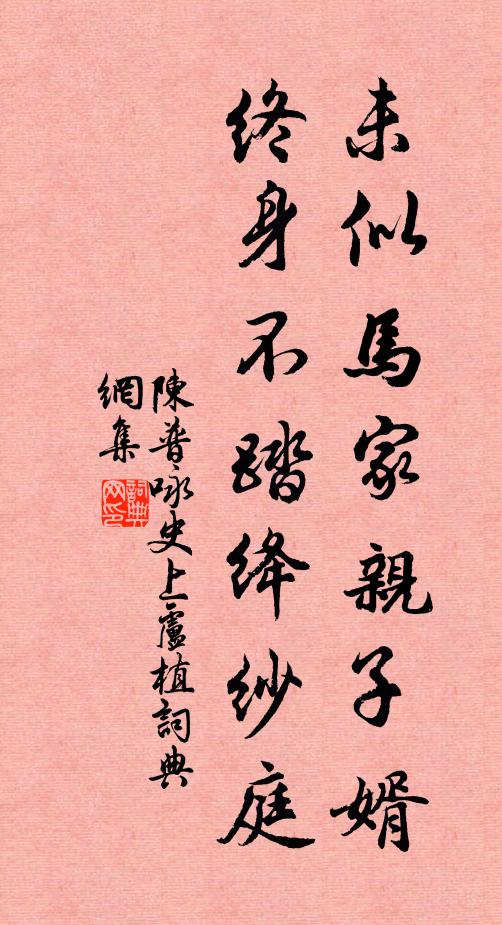 未似馬家親子婿
終身不踏絳紗庭
陳普咏史上盧植詞典
網集
詞典
网印